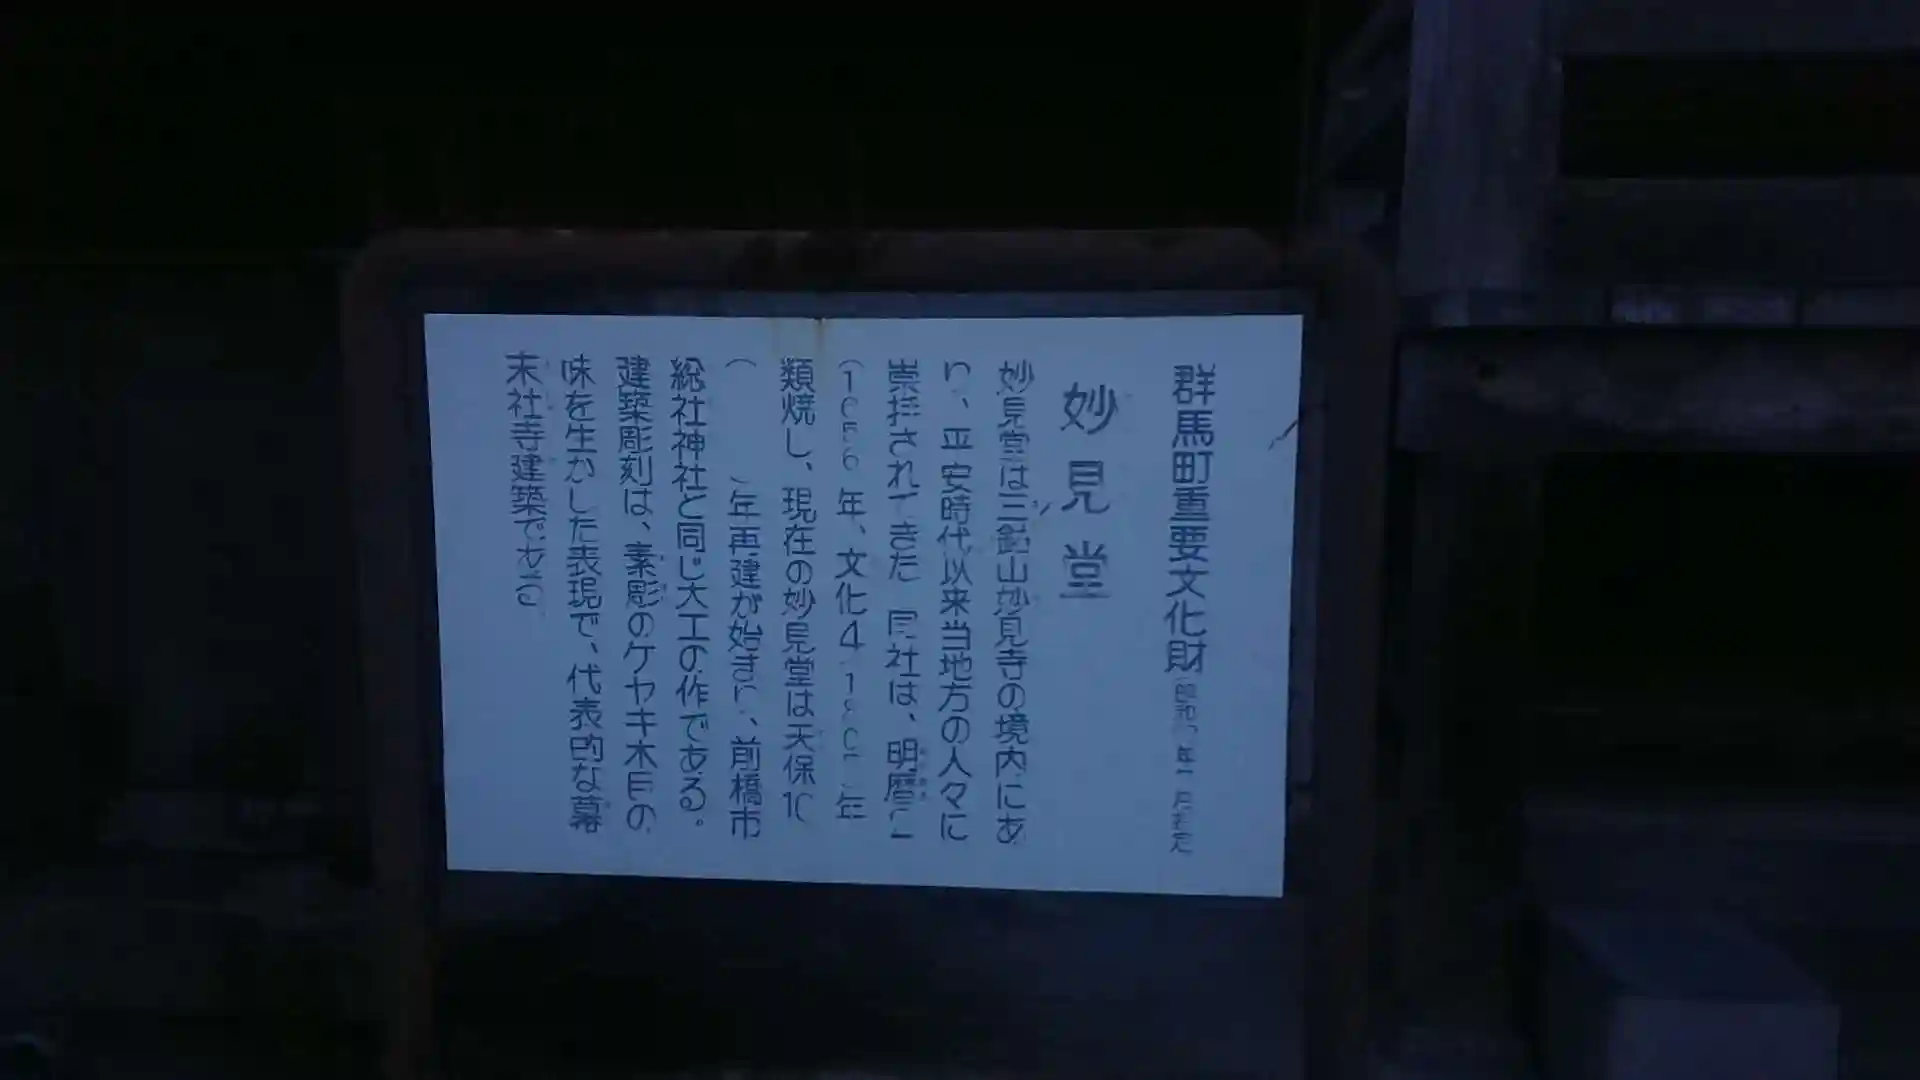 群馬町重要文化財
妙見堂
妙見堂は三鈷山妙見寺の境内にあ
り、平安時代以来当地方の人々に
崇拝されてきた 同社は、明暦2
(1656 年、文化4 年
類焼し、現在の妙見堂は天保10
( )年再建が始まり、前橋市
総社神社と同じ大工の作である。
建築彫刻は、素彫のケヤキ木目の
味を生かした表現で、代表的な幕
末社寺建築である